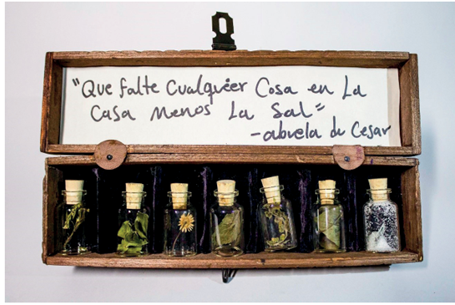 "Que falte Cualquier Cosa en La
Casa Menos La Sal"
-abuela de Cesar